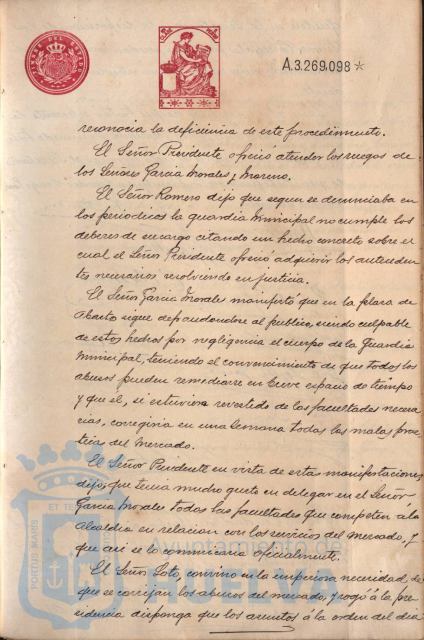 A.3.269.098 *
reconocia la deficiencia de este procedimiento.
El Señor Presidente ofreció atender los ruegos de
los Señores Garcia Morales y Moreno.
El Señor Romero dijo que segun se denunciaba en
los periodicos la guardia Municipal no cumple los
deberes de su cargo citando un hecho concreto sobre el
cual el Señor Presidente ofreció adquirir los antenden
tes necesarios resolviendo en justicia.
El Señor Garcia Morales manifestó que en la plaza de
Abasto sigue defraudandose al publico, siendo culpable
de estos hechos por negligencia el cuerpo de la Guardia
Municipal, teniendo el convencimiento de que todos los
abusos pueden remediarse en breve espacio de tiempo
y que el, si estuviera revestido de las facultades necesa
rias, corregiria en una semana todas las malas prac
ticas del Mercado.
El Señor Presidente en vista de estas manifestaciones
dijo, que tenia mucho gusto en delegar en el Señor
Garcia Morales todas las facultades que competen á la
Alcaldia en relacion con los servicios del Mercado, y
que asi se lo comunicaria oficialmente.
El Señor Soto, convino en la imperiosa necesidad, de
que se corrijan los abusos del mercado, y rogó á la pre
sidencia disponga que los asuntos á la orden del dia